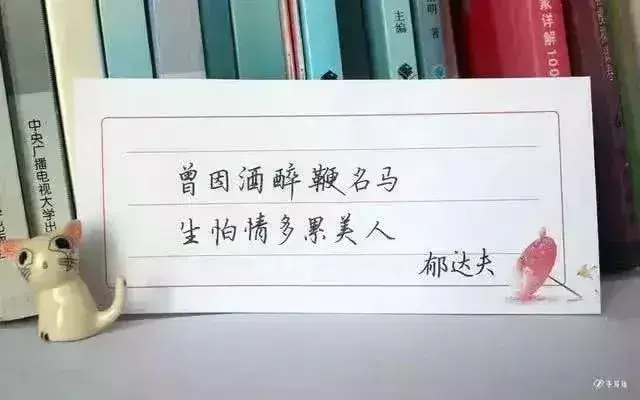 主编
明 著
家详解100
中央广播电视大学出
曾因酒醉鞭名马
生怕情多累美人
郁达夫